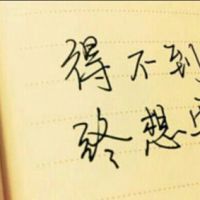 得不到
终想